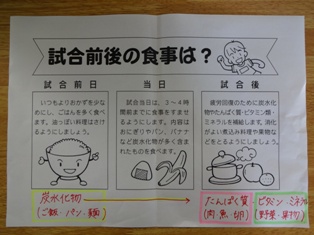 試合前後の食事は？
試合前日
いつもよりおかずを少な
めにし、ごはんを多く食べ
ます。油っぽい料理はさけ
るようにしましょう。
当日
試合当日は、3～4時
間前までに食事をすませ
るようにします。内容は
おにぎりやパン、バナナ
など炭水化物が多く含ま
れたものを食べます。
試合後
疲労回復のために炭水化
物やたんぱく質・ビタミン類・
ミネラルを補給します。消化
がよい煮込み料理や果物な
どをとるようにしましょう。
炭水化物
(ご飯・パン・麺)
たんぱく質
(肉・魚・卵)
ビタミン・ミネラル
(野菜・果物)